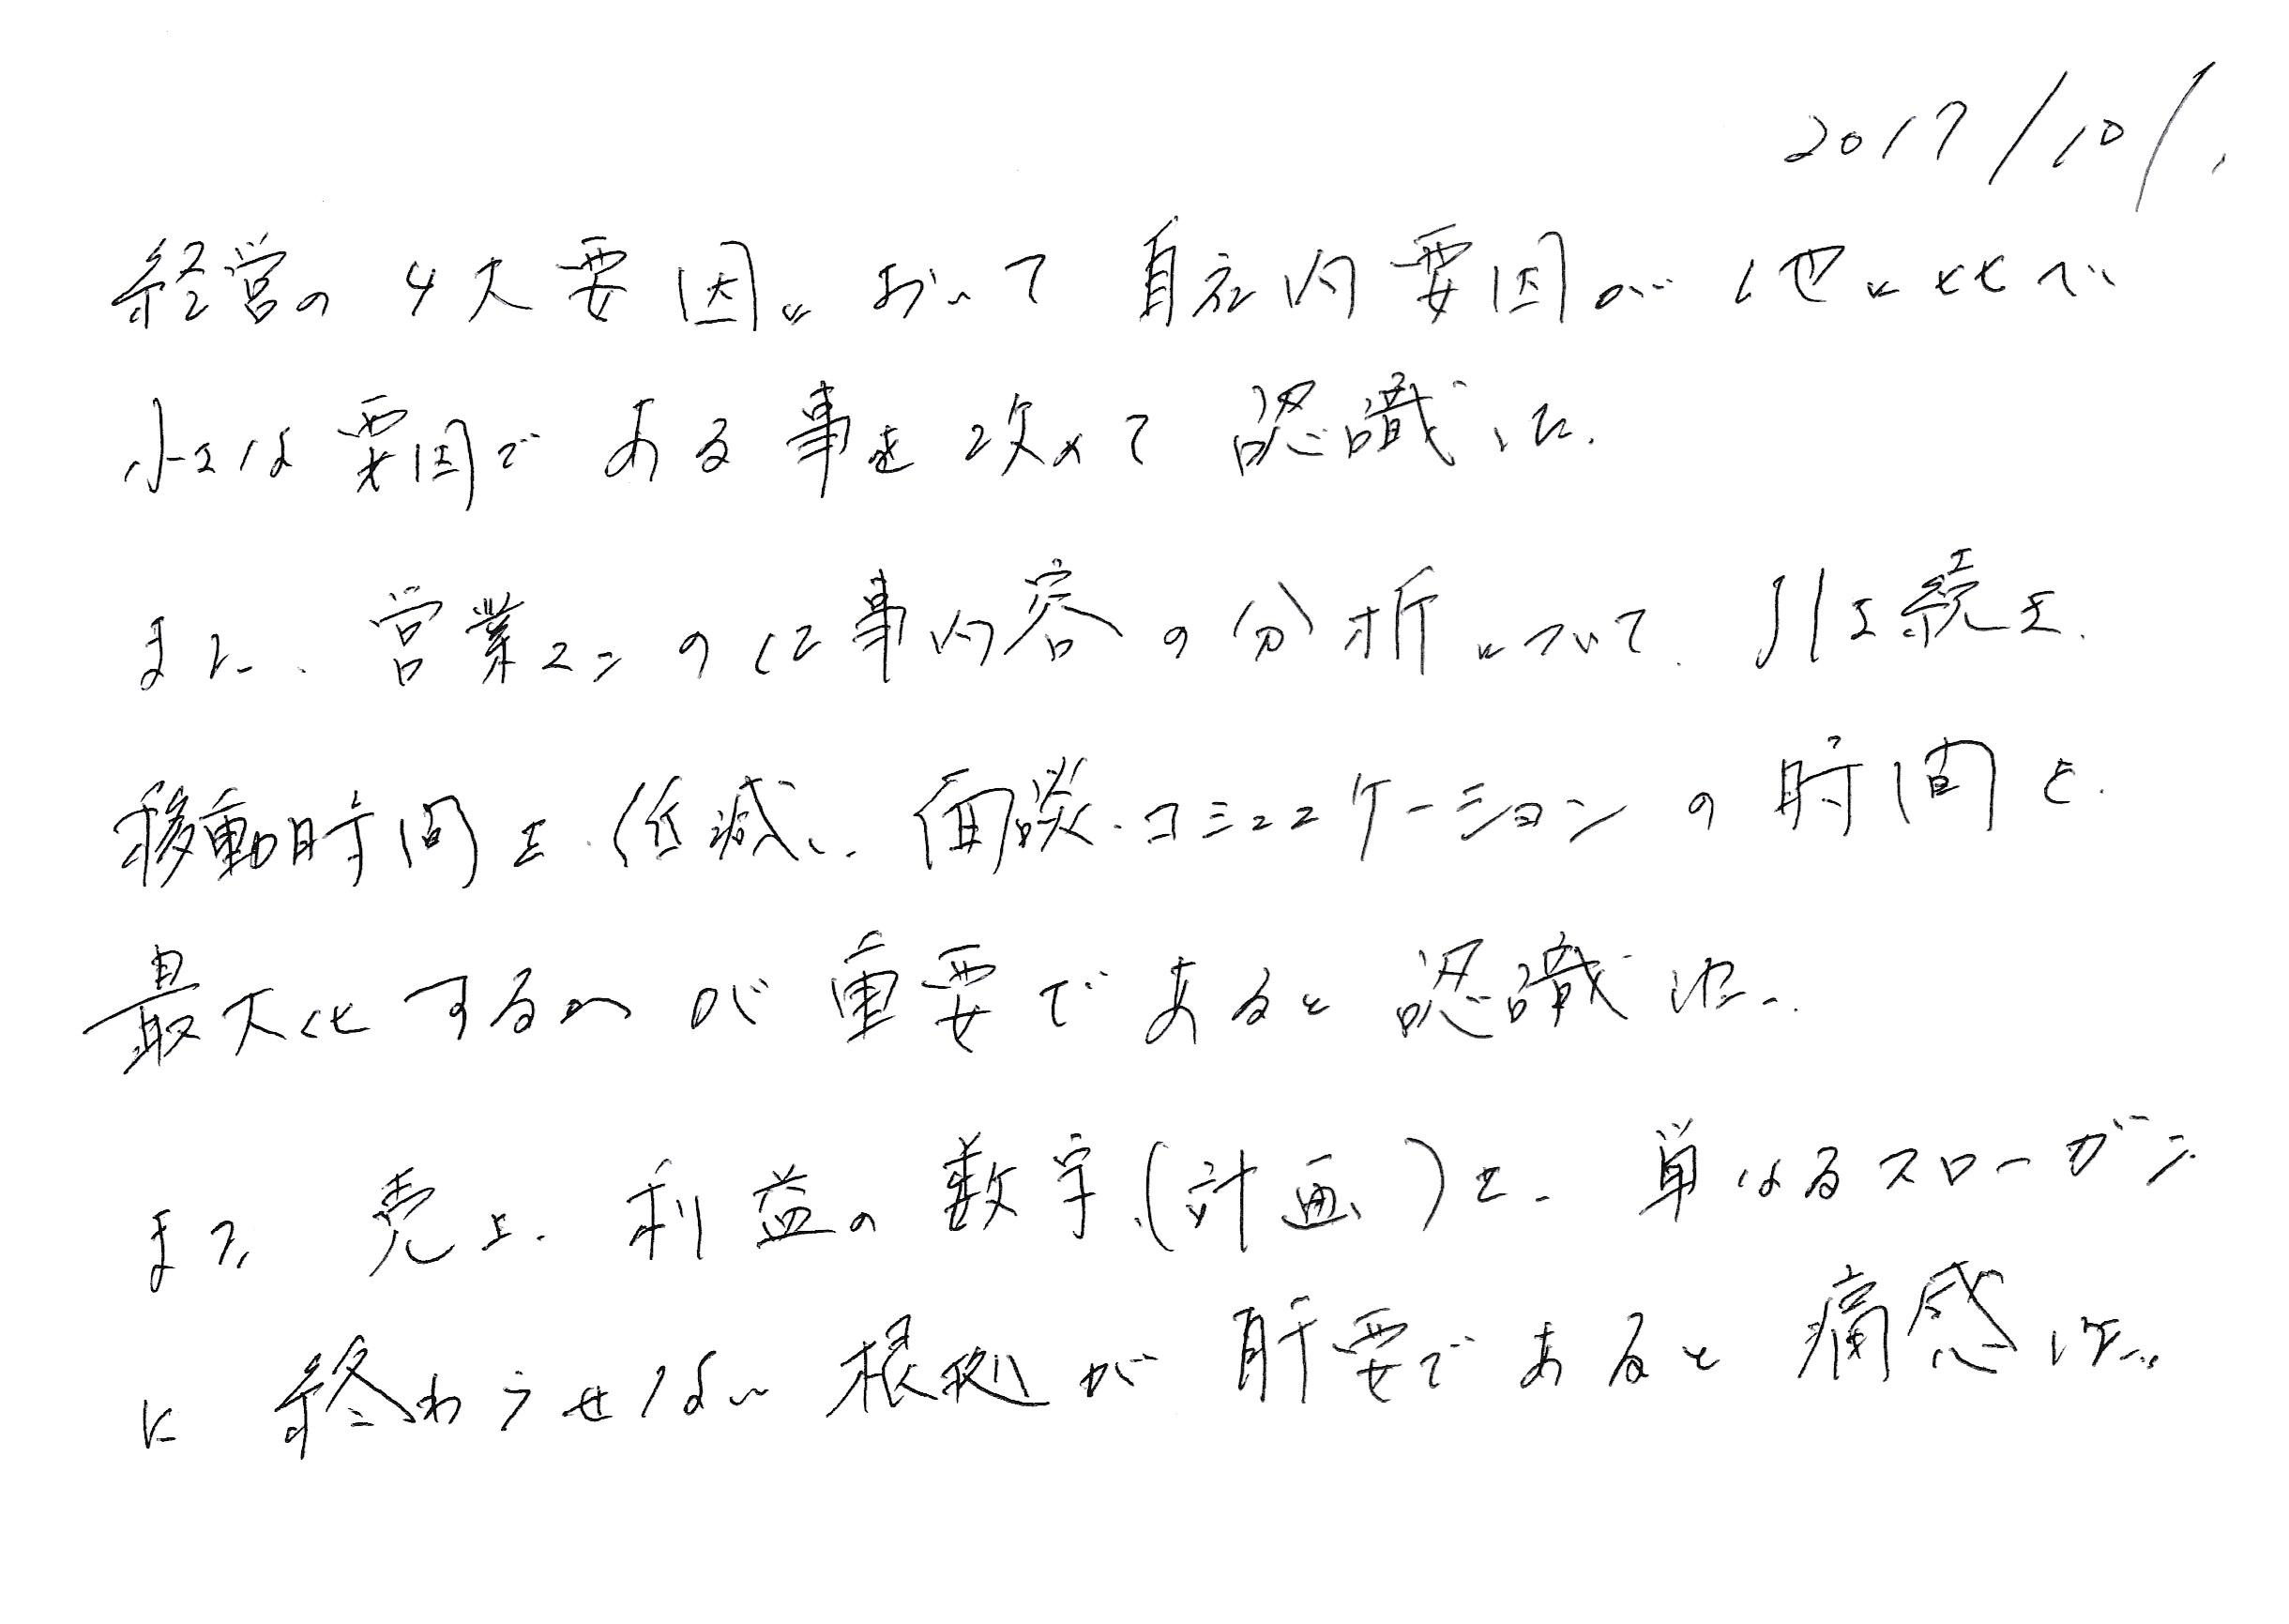 2017/10/1.
経営の4大要因において自社内要因が他に比べ
小さな要因である事を改めて認識した.
また、営業マンの仕事内容の分析について、引き続き、
移動時間を低減し、面談・コミュニケーションの時間を
最大化するのが重要であると認識した.
また売上、利益の数字(計画)を、単なるスローガン
に終わらせない根拠が肝要であると痛感した.